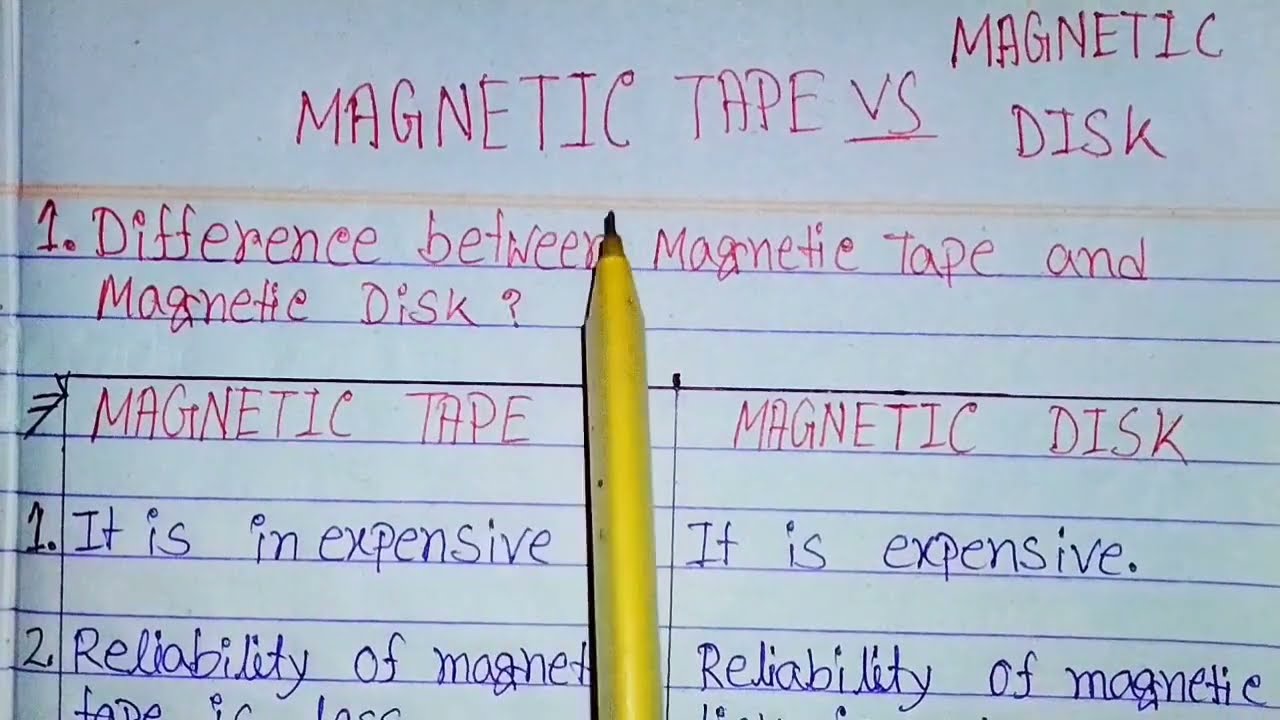 MAGNETIC TAPE VS MAGNETIC
DISK
1. Difference between Magnetic Tape and
Magnetic Disk ?
⇒ MAGNETIC TAPE MAGNETIC DISK
1. It is inexpensive It is expensive.
2. Reliability of magnet Reliability of magnetic
tape is less